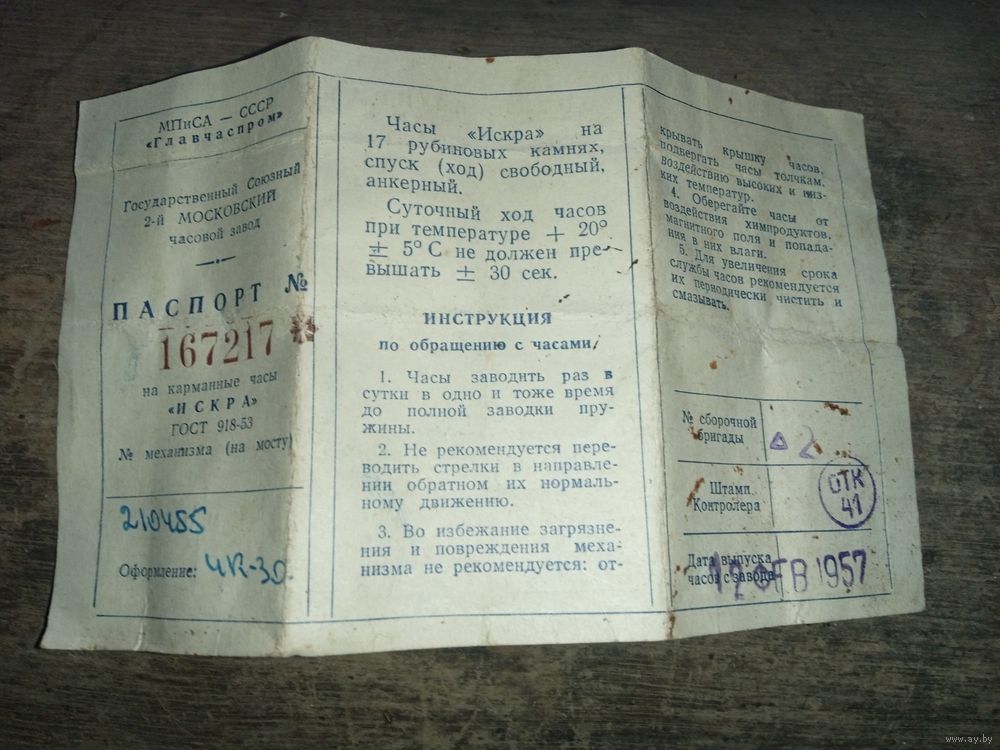 МПиСА — СССР
«Главчаспром»
Государственный Союзный
2-й МОСКОВСКИЙ
часовой завод
ПАСПОРТ №
167217 *
на карманные часы
«ИСКРА»
ГОСТ 918-53
№ механизма (на мосту)
210455
Оформление: ЧК-30
Часы «Искра» на
17 рубиновых камнях,
спуск (ход) свободный,
анкерный.
Суточный ход часов
при температуре + 20°
± 5° С не должен пре-
вышать ± 30 сек.
ИНСТРУКЦИЯ
по обращению с часами
1. Часы заводить раз в
сутки в одно и тоже время
до полной заводки пру-
жины.
2. Не рекомендуется пере-
водить стрелки в направле-
нии обратном их нормаль-
ному движению.
3. Во избежание загрязне-
ния и повреждения меха-
низма не рекомендуется: от-
крывать крышку часов,
подвергать часы толчкам,
воздействию высоких и низ-
ких температур.
4. Оберегайте часы от
воздействия химпродуктов,
магнитного поля и попада-
ния в них влаги.
5. Для увеличения срока
службы часов рекомендуется
их периодически чистить и
смазывать.
№ сборочной
бригады
2
Штамп
Контролера
ОТК
41
Дата выпуска
часов с завода
12 ФЕВ 1957
www.ay.by